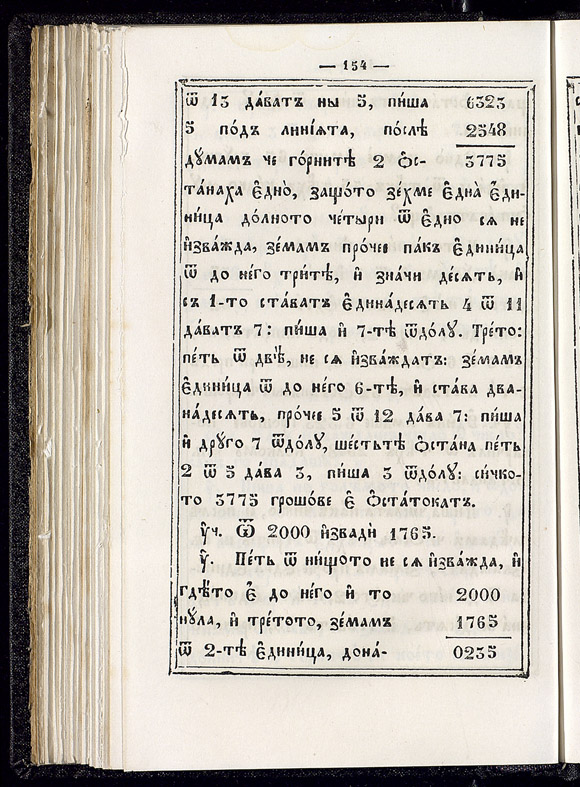 — 154 —
ѿ 13 да́ватъ ны 5, пи́ша 6323
5 по́дъ лині́ѧта, по́слѣ 2548
дꙋ́мамъ че го́рнитѣ 2 ѻ҆с- 3775
та́наха є҆дно̀, защо́то зе́хме є҆дна̀ є҆ди-
ни́ца до́лното че́тыри ѿ є҆дно сѧ не
и҆зва́жда, зе́мамъ про́чее па́къ є҆дини́ца
ѿ до не́го три́тѣ, и҆ зна́чи де́сѧть, и҆
съ 1-то ста́ватъ є҆дина́десѧть 4 ѿ 11
да́ватъ 7: пи́ша и҆ 7-тѣ ѿдо́лꙋ. Тре́то:
пе́ть ѿ двѣ̀, не сѧ и҆зва́ждатъ: зе́мамъ
є҆дини́ца ѿ до не́го 6-тѣ, и҆ ста́ва два-
на́десѧть, про́чее 5 ѿ 12 да́ва 7: пи́ша
и҆ дрꙋ́го 7 ѿдо́лꙋ, ше́стьтѣ ѻ҆ста́на пе́ть
2 ѿ 5 да́ва 3, пи́ша 3 ѿдо́лꙋ: си́чко-
то 3775 грошо́ве є҆ ѻ҆ста́токатъ.
Ꙋ҆ч. Ѿ 2000 и҆звадѝ 1765.
Ꙋ҆. Пе́ть ѿ ни́щото не сѧ и҆зва́жда, и҆
гдѣ́то є҆ до не́го и҆ то 2000
нꙋ́ла, и҆ тре́тото, зе́мамъ 1765
ѿ 2-тѣ є҆дини́ца, дона́- 0235